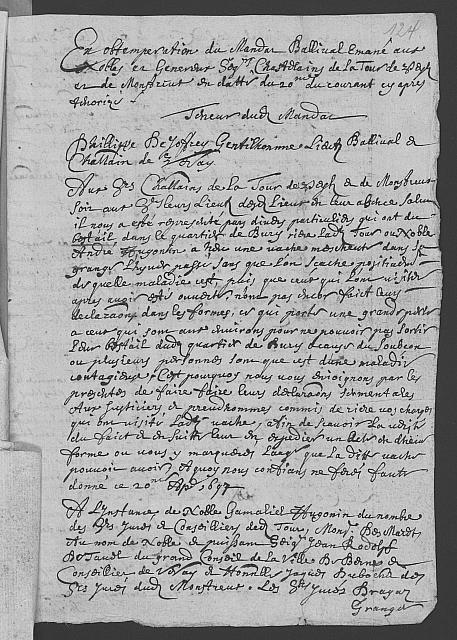 124
En obtemperation du Mandat Ballival Emané aux
Nobles et Genereux Seigrs Chastelains de la Tour de Peylz
et de Monstreux en datte du 20me du courant cy apres
Theneur dud Mandat
Philippe De Joffrey Gentilhomme Lieut Ballival &
Chastelain de Vevay
Aux Srs Chastlains de la Tour de Peylz & de Monstreux
soit aux Srs leurs Lieut desd Lieux en leur absence, Salut
il nous a esté representé par divers particuliers qui ont du
bestail dans le quartier de Burz riere lad Tour ou Noble
André Hugonin a heu une vache meschent dans sa
grange passé sans que l'on scache positivement
de quelle maladie c'est, puis que ceux qui l'ont visitée
apres avoir esté ouverte, nont pas encor faict leurs
declaraons dans les formes, ce qui porte une grande perte
a ceux qui sont aux environs pour ne pouvoir pas sortir
leur bestail dud quartier de Burz a cause du soubçon
ou plusieurs personnes sont que c'est d'une maladie
contagieuse, C'est pourquoy nous vous enjoignons par les
presentes de faire faire leurs declaraons sermentales
Aux Justiciers & preudhommes commis de riere vos charges
qui ont visité Lad vache, afin de scavoir La verité
du faict & en suite leur en expedier un acte en deue
forme ou vous y marquerez Laage que La ditte vache
pouvoit avoir, A quoy nous confians ne ferez faute
donné ce 20me 1697
A L'instance de Noble Gamaliel Hugonin du nombre
des Srs Jurés & Conseillers de Tour, Monsr Des Marets
Au nom de Noble & puissant Seigr Jean Rodolf
du grand Conseil de la Ville de Berne &
Conseillier de Vevay & Jaques des
Srs Jurés dud Monstreux. Les Srs Jurés
Grangat